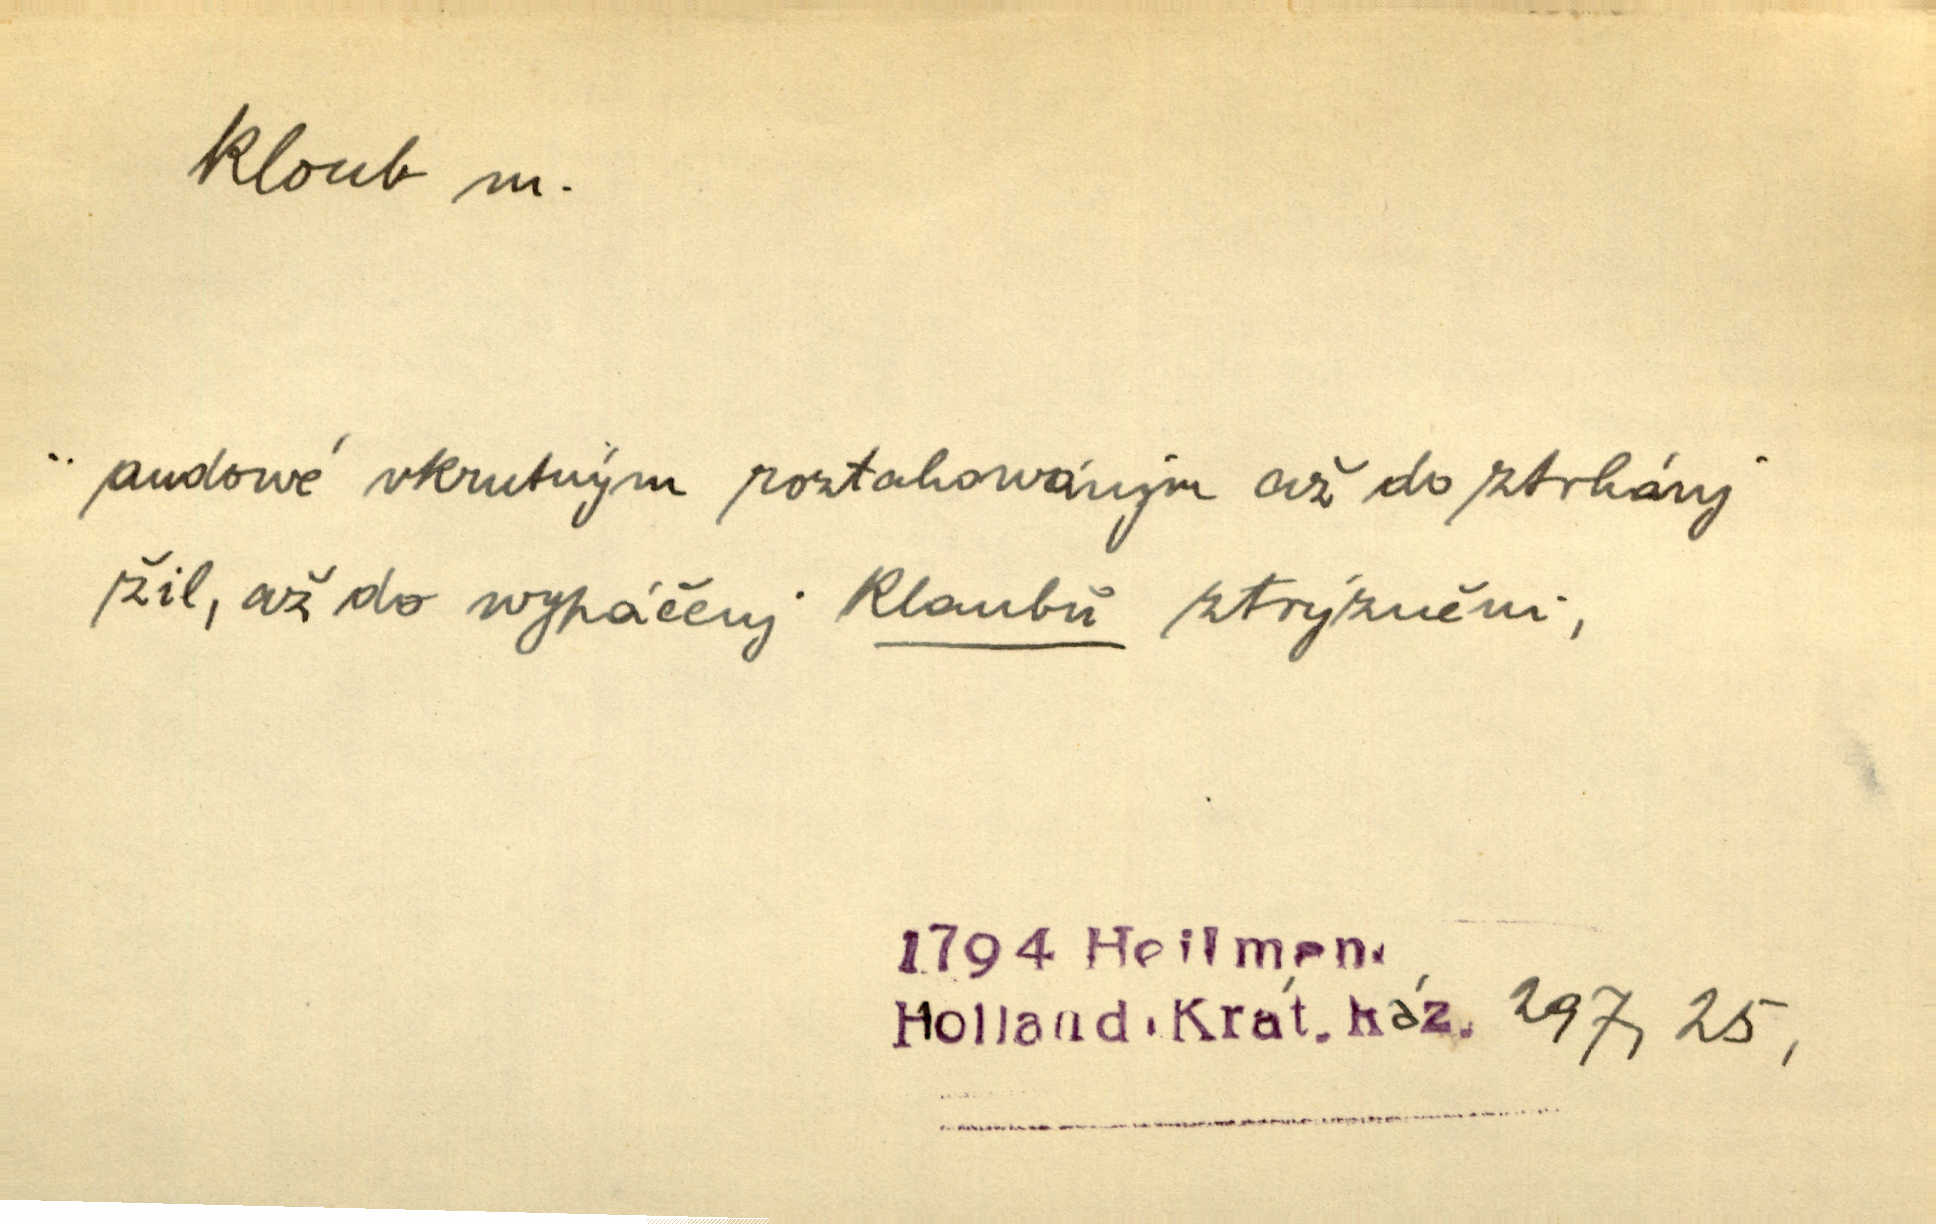 kloub m.
¨ audowé vkrutným roztahowánjm až do ztrhánj
žil, až do wypáčenj klaubů ztrýzněni,
1794 Heilman.
Holland. Krát. káz. 297, 25,